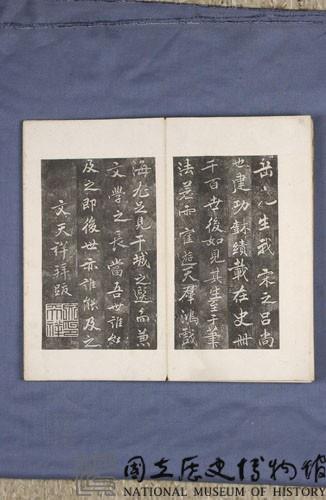 岳先生我宋之呂尚
也建功樹績載在史冊
千百世後如見其生至于筆
法若雲隺遊天羣鴻戲
海尤足見干城之選而兼
文學之長當吾世誰能
及之即後世亦誰能及之
文天祥拜跋
國立歷史博物館
NATIONAL MUSEUM OF HISTORY